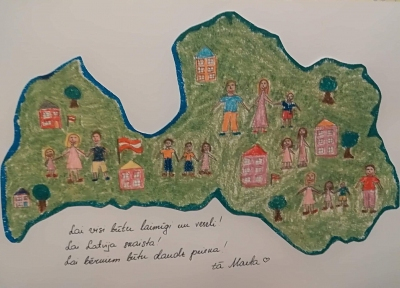 Lai visi būtu laimīgi un veseli!
Lai Latvija skaista!
Lai bērniem būtu daudz prieka!
tā Marta ♡